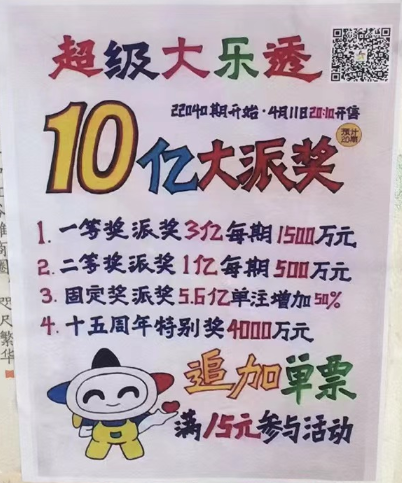 超级大乐透
22040期开始·4月11日20:10开售
10亿大派奖
预计
20期
1. 一等奖派奖3亿每期1500万元
2. 二等奖派奖1亿每期500万元
3. 固定奖派奖5.6亿单注增加50%
4. 十五周年特别奖4000万元
追加单票
满15元参与活动
咫尺繁华